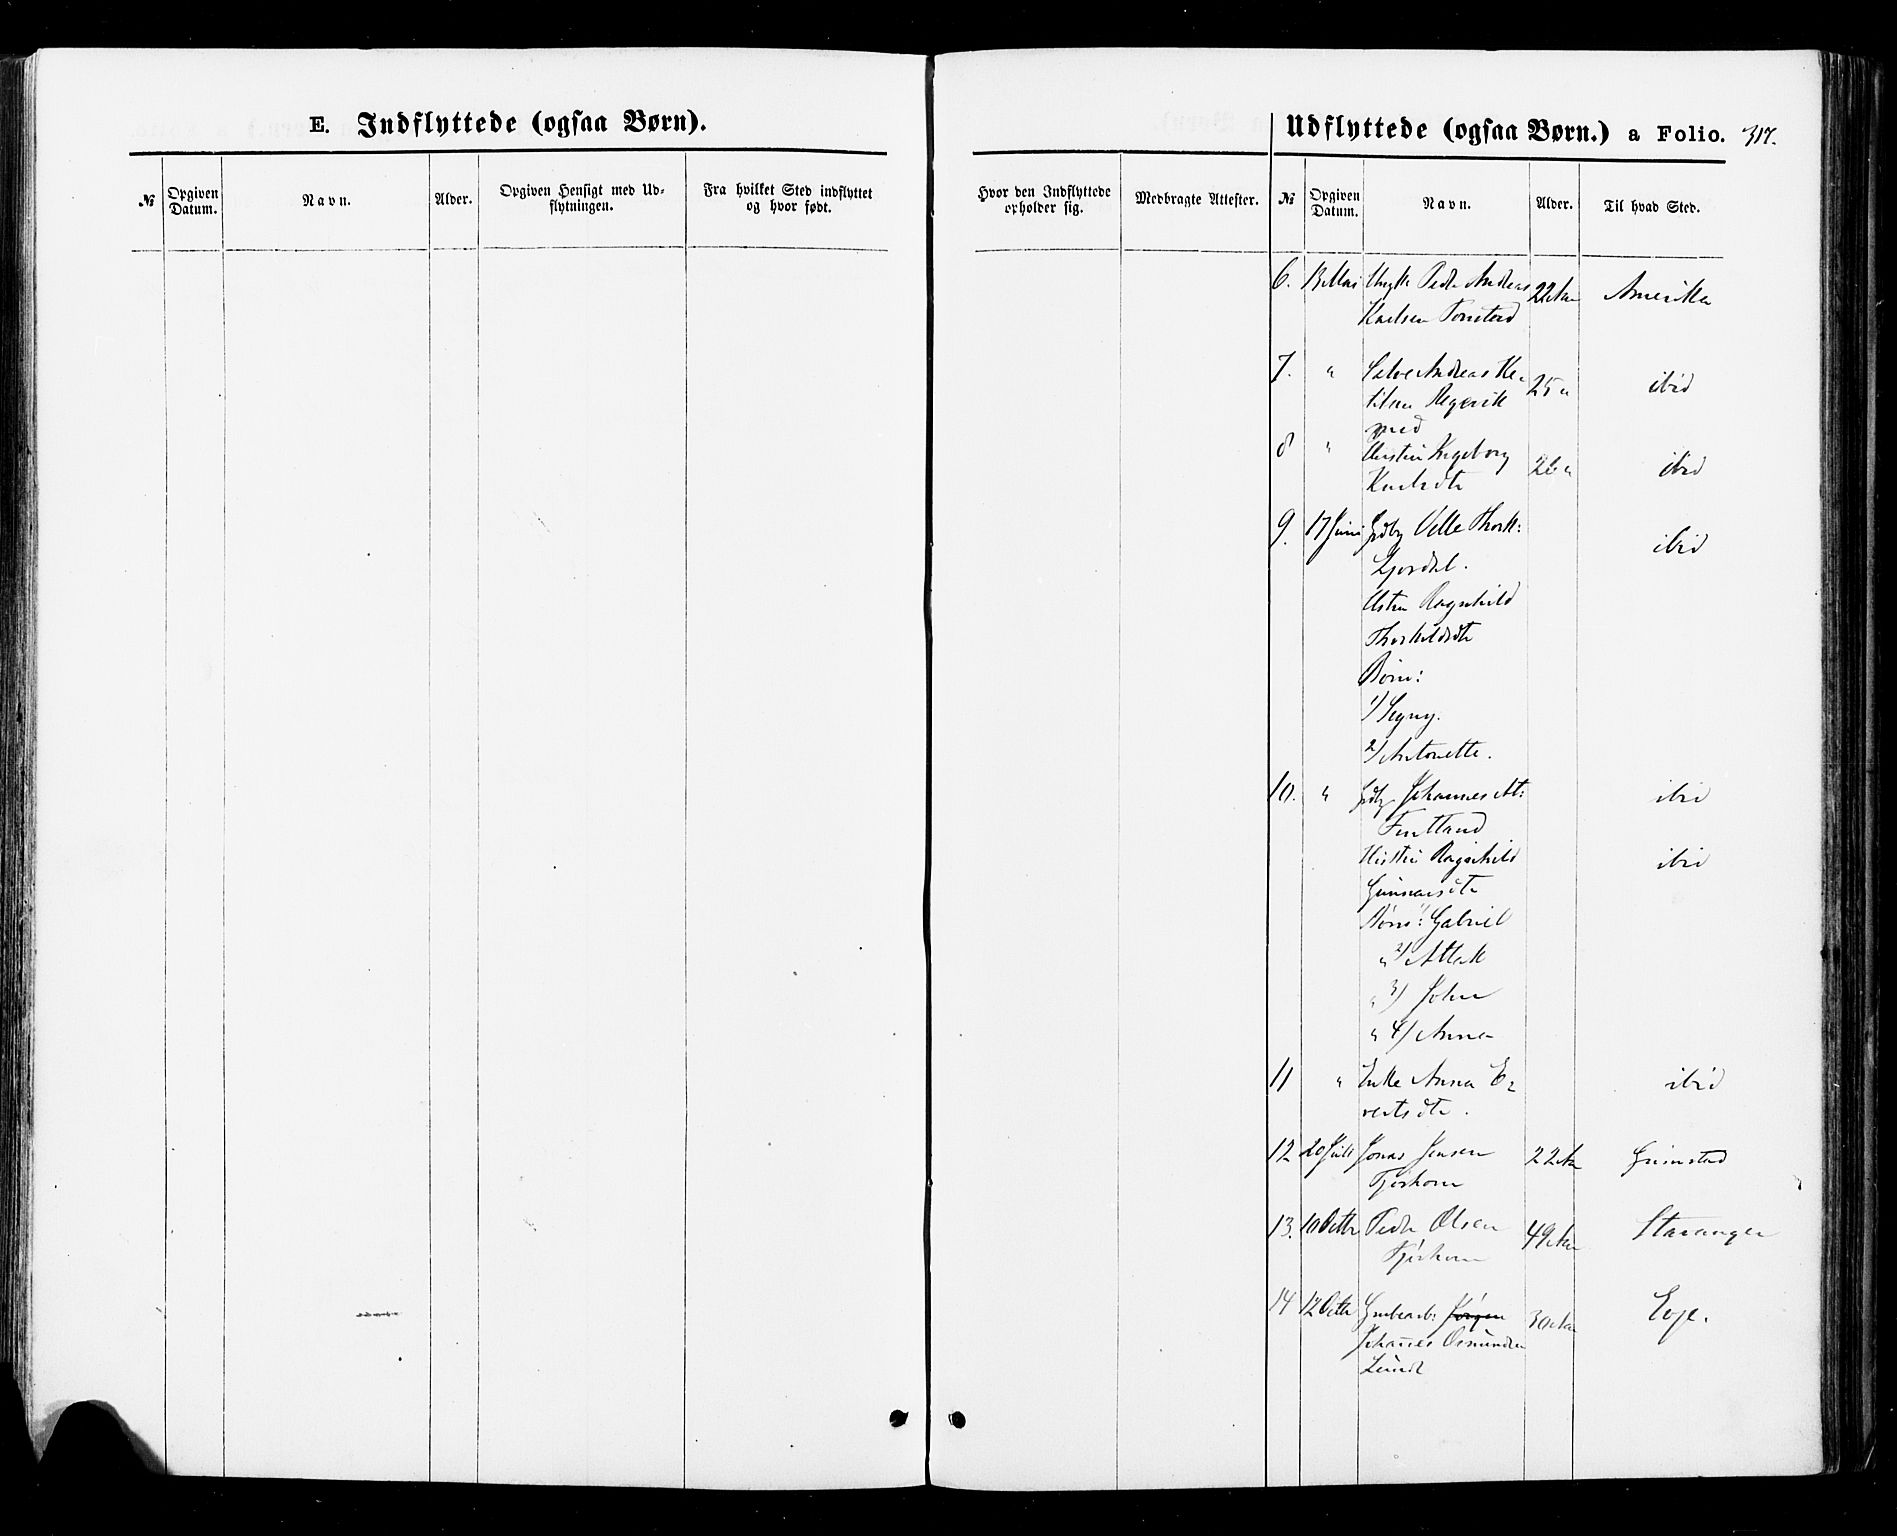 E. Indflyttede (ogsaa Børn).
№
Opgiven Datum.
Navn.
Alder.
Opgiven Hensigt med Ud-
flytningen.
Fra hvilket Sted indflyttet
og hvor født.
Hvor den Indflyttede
opholder sig.
Medbragte Attester.
Udflyttede (ogsaa Børn.) a Folio. 317.
№
Opgiven Datum.
Navn.
Alder.
Til hvad Sted.
6. 13 Mai Ungk. Peder Andreas 22 Aar Amerika
Karlsen Tonstad
7. " Salve Andreas Ke- 25 " ibid
tilsen Regevik
med
8 " Kirstine Ingeborg 26 " ibid
Karlsdtr
9. 17 Juni Grdbr Thork: ibid
Liordal.
Ragnhild
Thorkildsdtr
Børn:
1) Signy.
2) Antonette.
10. " Grdbr Johannes Att: ibid
Fintland
Ragnhild ibid
Gunnarsdtr
Børn: 1) Gabriel
" 2) Atlak
" 3) John
" 4) Anna
11 " Enke Anna E- ibid
vertsdtr.
12 20 Juli Jonas Jensen 22 Aar Grimstad
Tjørhom
13. 10 Octbr Peder Olsen 49 Aar Stavanger
Tjørhom
14 12 Octbr Grubearb: Jørgen 30 Aar Evje.
Johannes Osmundsen
Lunde